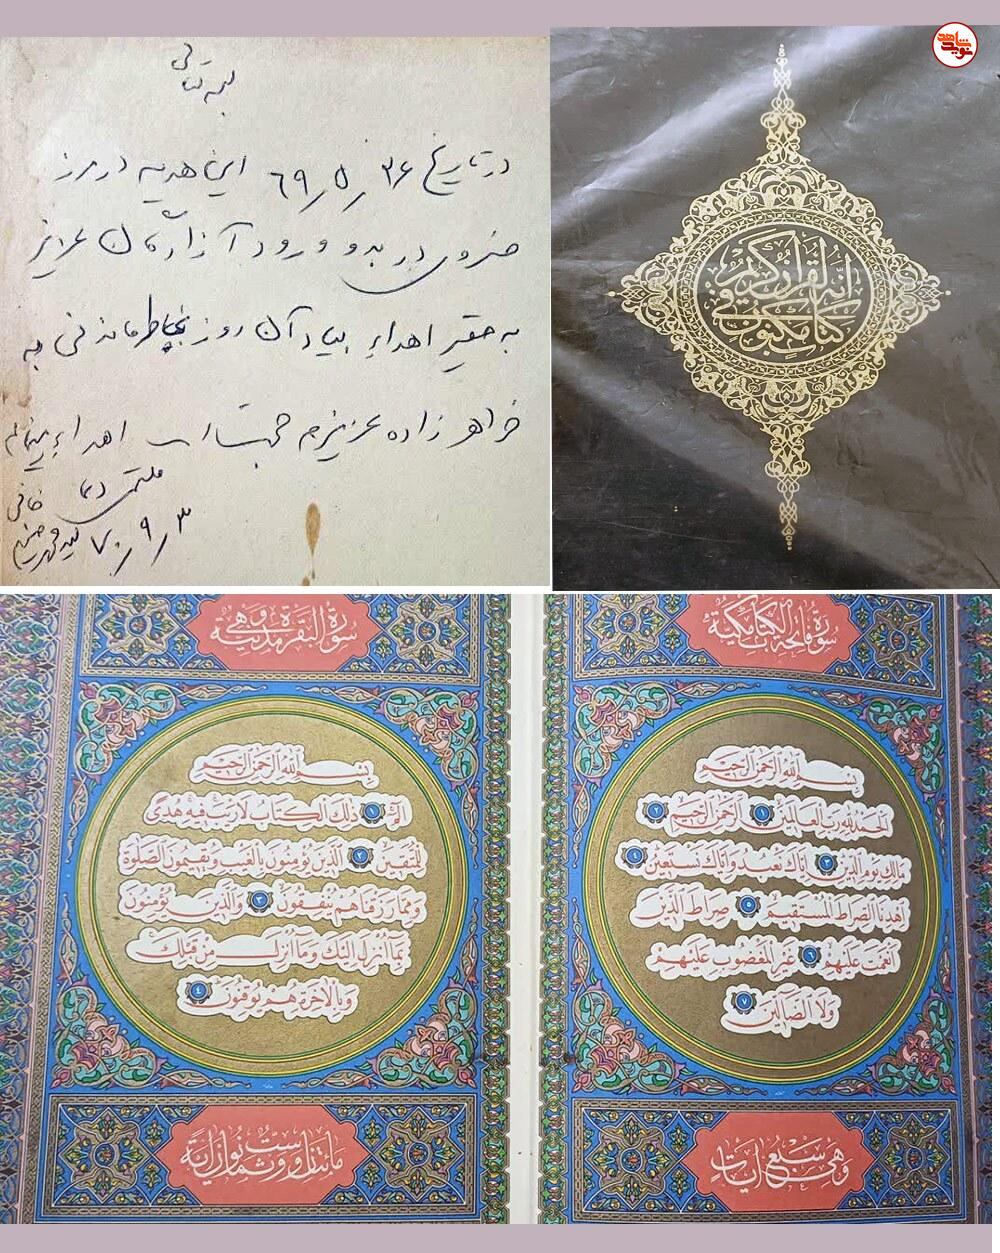 بسمه تعالی
در تاریخ ۶۹/۵/۲۶ این هدیه در مرز
خسروی در بدو ورود آزادگان عزیز
به حقیر اهداء بیاد آن روز بخاطر ماندنی به
خواهر زاده عزیزم حجت اله اهداء مینمایم
ملتمس دعا
۷۰/۹/۳
نوید شاهد
إنه لقرآن كريم
في كتاب مكنون
سورة فاتحة الكتاب مكية
بسم الله الرحمن الرحيم
الحمد لله رب العالمين ١ الرحمن الرحيم ٢
مالك يوم الدين ٣ إياك نعبد وإياك نستعين ٤
اهدنا الصراط المستقيم ٥ صراط الذين
أنعمت عليهم ٦ غير المغضوب عليهم
ولا الضالين ٧
وهي سبع آيات
سورة البقرة مدنية وهي
بسم الله الرحمن الرحيم
الم ١ ذلك الكتاب لا ريب فيه هدى
للمتقين ٢ الذين يؤمنون بالغيب ويقيمون الصلوة
ومما رزقناهم ينفقون ٣ والذين يؤمنون
بما أنزل إليك وما أنزل من قبلك
وبالآخرة هم يوقنون ٤
مائتان وست وثمانون آية